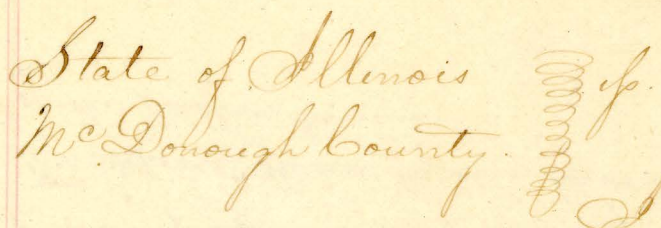 State of Illinois ss.
McDonough County.